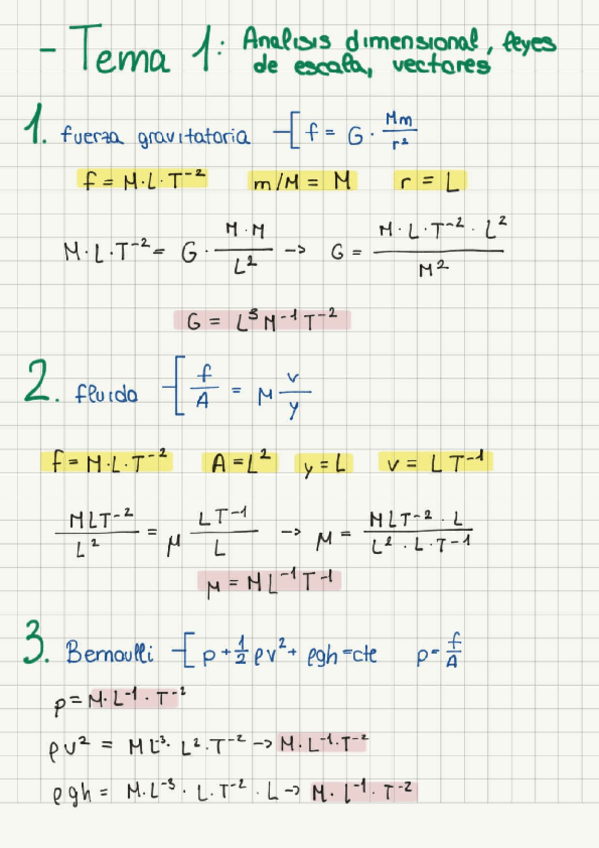 - Tema 1: Analisis dimensional, leyes
de escala, vectores
1. fuerza gravitatoria -[ f = G · Mm / r²
f = M·L·T⁻² m/M = M r = L
M·L·T⁻² = G · M·M / L² -> G = M·L·T⁻²·L² / M²
G = L³ M⁻¹ T⁻²
2. fluido -[ f / A = μ v / y
f = M·L·T⁻² A = L² y = L v = L T⁻¹
MLT⁻² / L² = μ LT⁻¹ / L -> μ = MLT⁻²·L / L²·L·T⁻¹
μ = M L⁻¹ T⁻¹
3. Bernoulli -[ p + 1/2 ρv² + ρgh = cte p = f / A
p = M·L⁻¹·T⁻²
ρv² = M L⁻³· L²·T⁻² -> M·L⁻¹·T⁻²
ρgh = M·L⁻³ · L·T⁻² · L -> M·L⁻¹·T⁻²